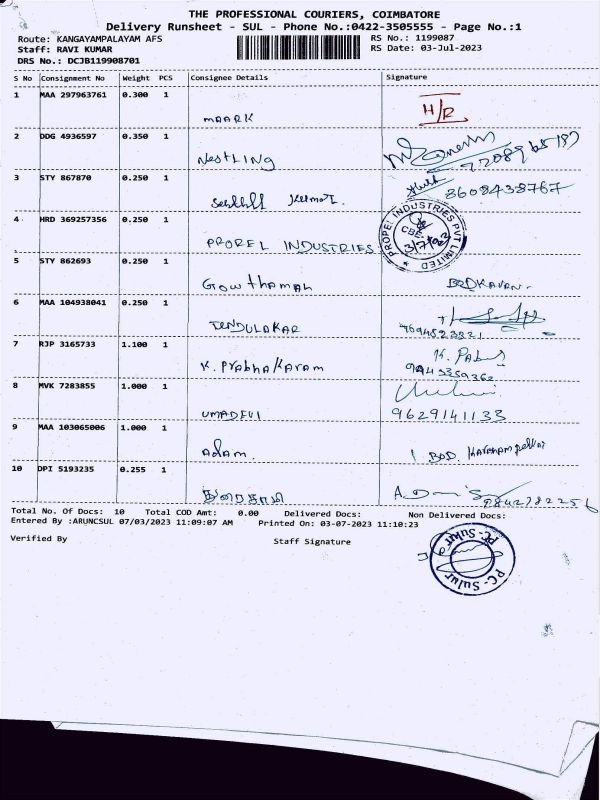 THE PROFESSIONAL COURIERS, COIMBATORE
Delivery Runsheet - SUL - Phone No.:0422-3505555 - Page No.:1
Route: KANGAYAMPALAYAM AFS RS No.: 1199087
Staff: RAVI KUMAR RS Date: 03-Jul-2023
DRS No.: DCJB119908701
S No Consignment No Weight PCS Consignee Details Signature
1 MAA 297963761 0.300 1
MAARK H/R
2 DDG 4936597 0.350 1
Nestling
3 STY 867870 0.250 1 8608438767
4 HRD 369257356 0.250 1
PROPEL INDUSTRIES PROPEL INDUSTRIES PVT LIMITED CBE
5 STY 862693 0.250 1
Gowthaman
6 MAA 104938041 0.250 1
TENDULAKAR
7 RJP 3165733 1.100 1
K. Prabhakaram
8 MVK 7283855 1.000 1
UMADEVI 9629141133
9 MAA 103065006 1.000 1
Adam.
10 DPI 5193235 0.255 1
Total No. Of Docs: 10 Total COD Amt: 0.00 Delivered Docs: Non Delivered Docs:
Entered By :ARUNCSUL 07/03/2023 11:09:07 AM Printed On: 03-07-2023 11:10:23
Verified By Staff Signature
PC-Sulur
PC-Sulur